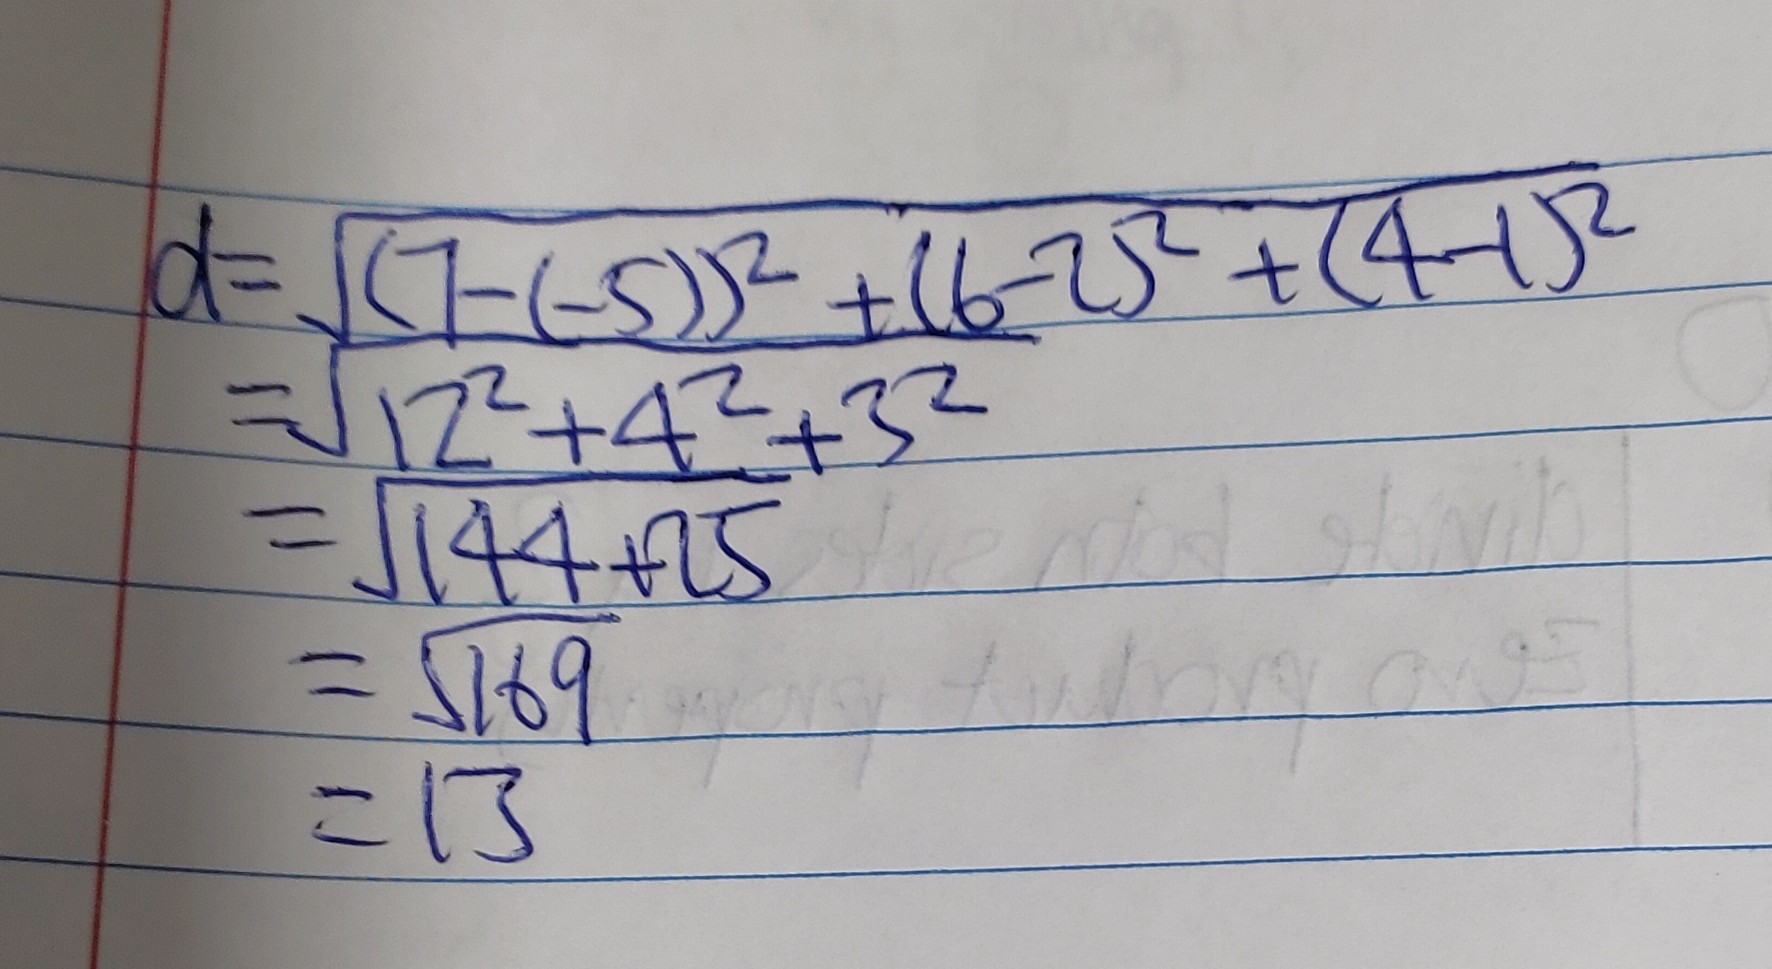 d=√((7-(-5))² + (6-2)² + (4-1)²)
=√(12²+4²+3²)
=√(144+25)
=√169
=13
divide both sides
zero product property